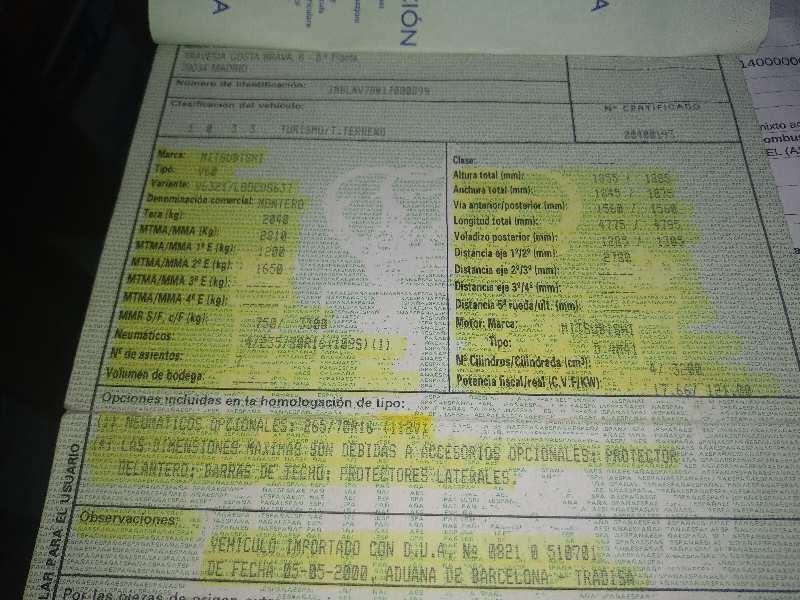 A
CIÓN
A
TRAVESIA COSTA BRAVA, 6 - 8ª Planta
28034 MADRID
Número de identificación:
Clasificación del vehículo:
1 0 3 3 TURISMO/T.TERRENO
Nº CERTIFICADO
Marca: MITSUBISHI
Tipo: V60
Variante:
Denominación comercial: MONTERO
Tara (kg): 2040
MTMA/MMA (Kg): 2810
MTMA/MMA 1º E (kg): 1200
MTMA/MMA 2º E (kg): 1650
MTMA/MMA 3º E (kg):
MTMA/MMA 4º E (kg):
MMR S/F, c/F (kg): 750/ 3300
Neumáticos: 4/235/80R16(109S)(1)
Nº de asientos:
Volumen de bodega:
Clase:
Altura total (mm): 1855 / 1885
Anchura total (mm): 1845 / 1875
Vía anterior/posterior (mm): 1560 / 1560
Longitud total (mm): 4775 / 4795
Voladizo posterior (mm): 1285 / 1305
Distancia eje 1º/2º (mm): 2780
Distancia eje 2º/3º (mm):
Distancia eje 3º/4º (mm):
Distancia 5ª rueda/ult. (mm):
Motor: Marca: MITSUBISHI
Tipo: 4M41
Nº Cilindros/Cilindrada (cm³): 4/ 3200
Potencia fiscal/real (C.V.F/KW): 17.66/ 121.00
Opciones incluidas en la homologación de tipo:
(1) NEUMATICOS OPCIONALES: 265/70R16 (112V)
(*) LAS DIMENSIONES MAXIMAS SON DEBIDAS A ACCESORIOS OPCIONALES: PROTECTOR
DELANTERO; BARRAS DE TECHO; PROTECTORES LATERALES.
Observaciones:
VEHICULO IMPORTADO CON D.U.A. No 0821 0 510701
DE FECHA 05-05-2000, ADUANA DE BARCELONA - TRADISA
LAR PARA EL USUARIO